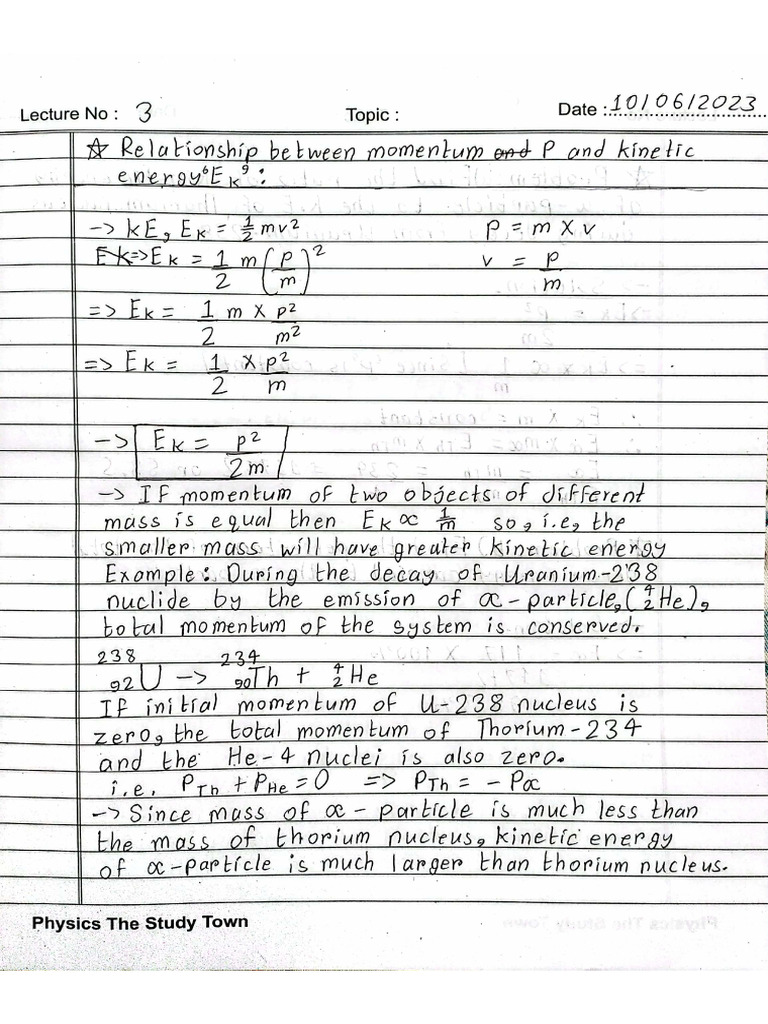 Lecture No : 3 Topic : Date : 10/06/2023
☆ Relationship between momentum and P and kinetic
energy ‘Ek’ :
-> kE, Ek = 1/2 mv² P = m x v
Ek => Ek = 1/2 m (P/m)² v = P/m
=> Ek = 1/2 m x P²/m²
=> Ek = 1/2 x P²/m
-> Ek = P²/2m
-> If momentum of two objects of different
mass is equal then Ek ∝ 1/m so, i.e, the
smaller mass will have greater kinetic energy
Example : During the decay of Uranium-238
nuclide by the emission of α-particle, (⁴₂He),
total momentum of the system is conserved.
²³⁸₉₂U -> ²³⁴₉₀Th + ⁴₂He
If initial momentum of U-238 nucleus is
zero, the total momentum of Thorium-234
and the He-4 nuclei is also zero.
i.e. PTh + PHe = 0 => PTh = - Pα
-> Since mass of α - particle is much less than
the mass of thorium nucleus, kinetic energy
of α-particle is much larger than thorium nucleus.
Physics The Study Town